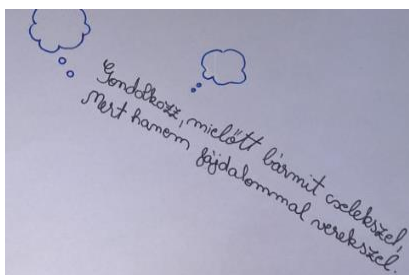 Gondolkozz, mielőtt bármit cselekszel,
Mert hanem fájdalommal verekszel.